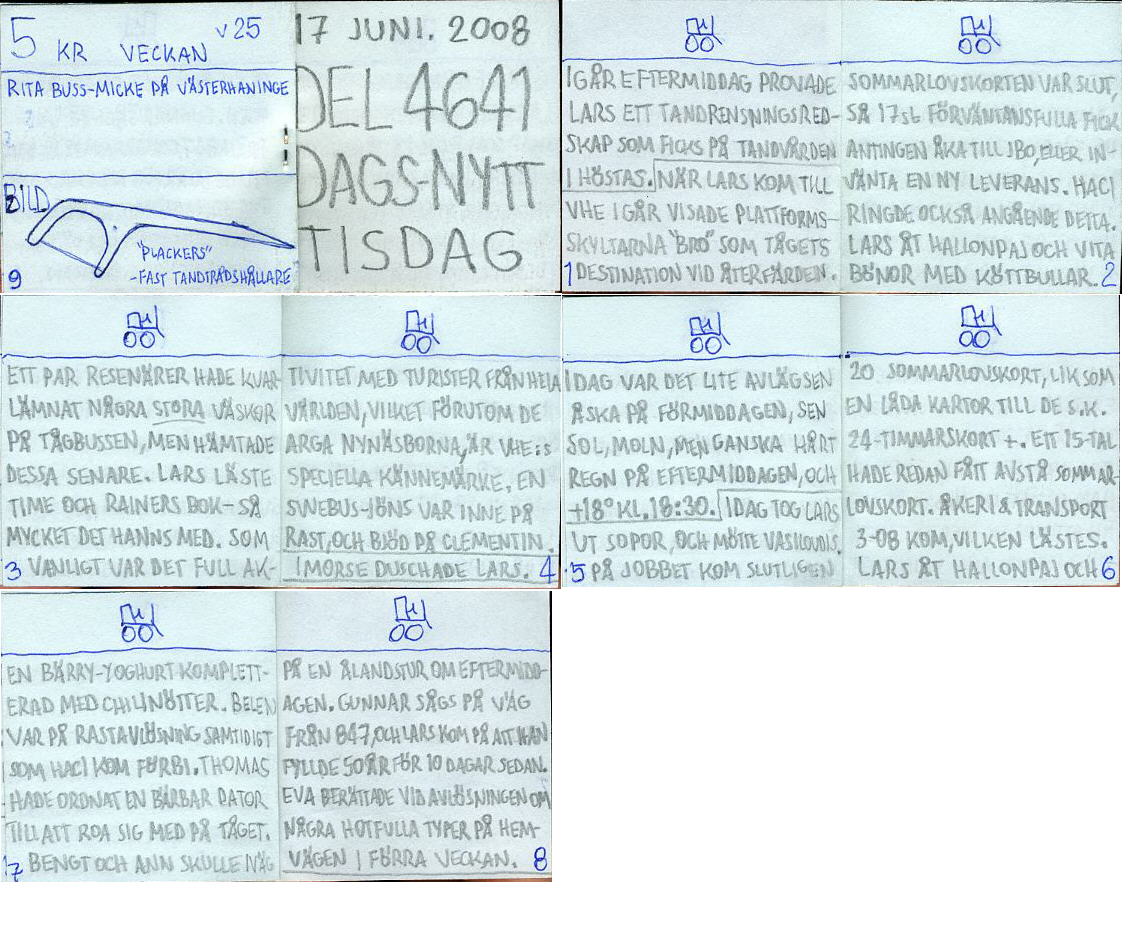 5 KR VECKAN V 25
RITA BUSS-MICKE PÅ VÄSTERHANINGE
BILD
"PLACKERS"
-FAST TANDTRÅDSHÅLLARE
9
17 JUNI. 2008
DEL 4641
DAGS-NYTT
TISDAG
IGÅR EFTERMIDDAG PROVADE
LARS ETT TANDRENSNINGSRED-
SKAP SOM FICKS PÅ TANDVÅRDEN
I HÖSTAS. NÄR LARS KOM TILL
VHE IGÅR VISADE PLATTFORMS-
SKYLTARNA "BRO" SOM TÅGETS
1 DESTINATION VID ÅTERFÄRDEN.
SOMMARLOVSKORTEN VAR SLUT,
SÅ 17 st FÖRVÄNTANSFULLA FICK
ANTINGEN ÅKA TILL JBO, ELLER IN-
VÄNTA EN NY LEVERANS. HACI
RINGDE OCKSÅ ANGÅENDE DETTA.
LARS ÅT HALLONPAJ OCH VITA
BÖNOR MED KÖTTBULLAR. 2
ETT PAR RESENÄRER HADE KVAR-
LÄMNAT NÅGRA STORA VÄSKOR
PÅ TÅGBUSSEN, MEN HÄMTADE
DESSA SENARE. LARS LÄSTE
TIME OCH RAINERS BOK-SÅ
MYCKET DET HANNS MED. SOM
3 VANLIGT VAR DET FULL AK-
TIVITET MED TURISTER FRÅN HELA
VÄRLDEN, VILKET FÖRUTOM DE
ARGA NYNÄSBORNA, ÄR VHE:s
SPECIELLA KÄNNEMÄRKE. EN
SWEBUS-JÖNS VAR INNE PÅ
RAST, OCH BJÖD PÅ CLEMENTIN.
I MORSE DUSCHADE LARS. 4
IDAG VAR DET LITE AVLÄGSEN
ÅSKA PÅ FÖRMIDDAGEN, SEN
SOL, MOLN, MEN GANSKA HÅRT
REGN PÅ EFTERMIDDAGEN, OCH
+18° KL. 18:30. IDAG TOG LARS
UT SOPOR, OCH MÖTTE
5 PÅ JOBBET KOM SLUTLIGEN
20 SOMMARLOVSKORT, LIKSOM
EN LÅDA KARTOR TILL DE S.K.
24-TIMMARSKORT +. ETT 15-TAL
HADE REDAN FÅTT AVSTÅ SOMMAR-
LOVSKORT. ÅKERI & TRANSPORT
3-08 KOM, VILKEN LÄSTES.
LARS ÅT HALLONPAJ OCH 6
EN BÄRRY-YOGHURT KOMPLETT-
ERAD MED CHILINÖTTER. BELEN
VAR PÅ RASTAVLÖSNING SAMTIDIGT
SOM HACI KOM FÖRBI. THOMAS
HADE ORDNAT EN BÄRBAR DATOR
TILL ATT ROA SIG MED PÅ TÅGET.
7 BENGT OCH ANN SKULLE IVÄG
PÅ EN ÅLANDSTUR OM EFTERMIDD-
AGEN. GUNNAR SÅGS PÅ VÄG
FRÅN 847, OCH LARS KOM PÅ ATT HAN
FYLLDE 50 ÅR FÖR 10 DAGAR SEDAN.
EVA BERÄTTADE VID AVLÖSNINGEN OM
NÅGRA HOTFULLA TYPER PÅ HEM-
VÄGEN I FÖRRA VECKAN. 8